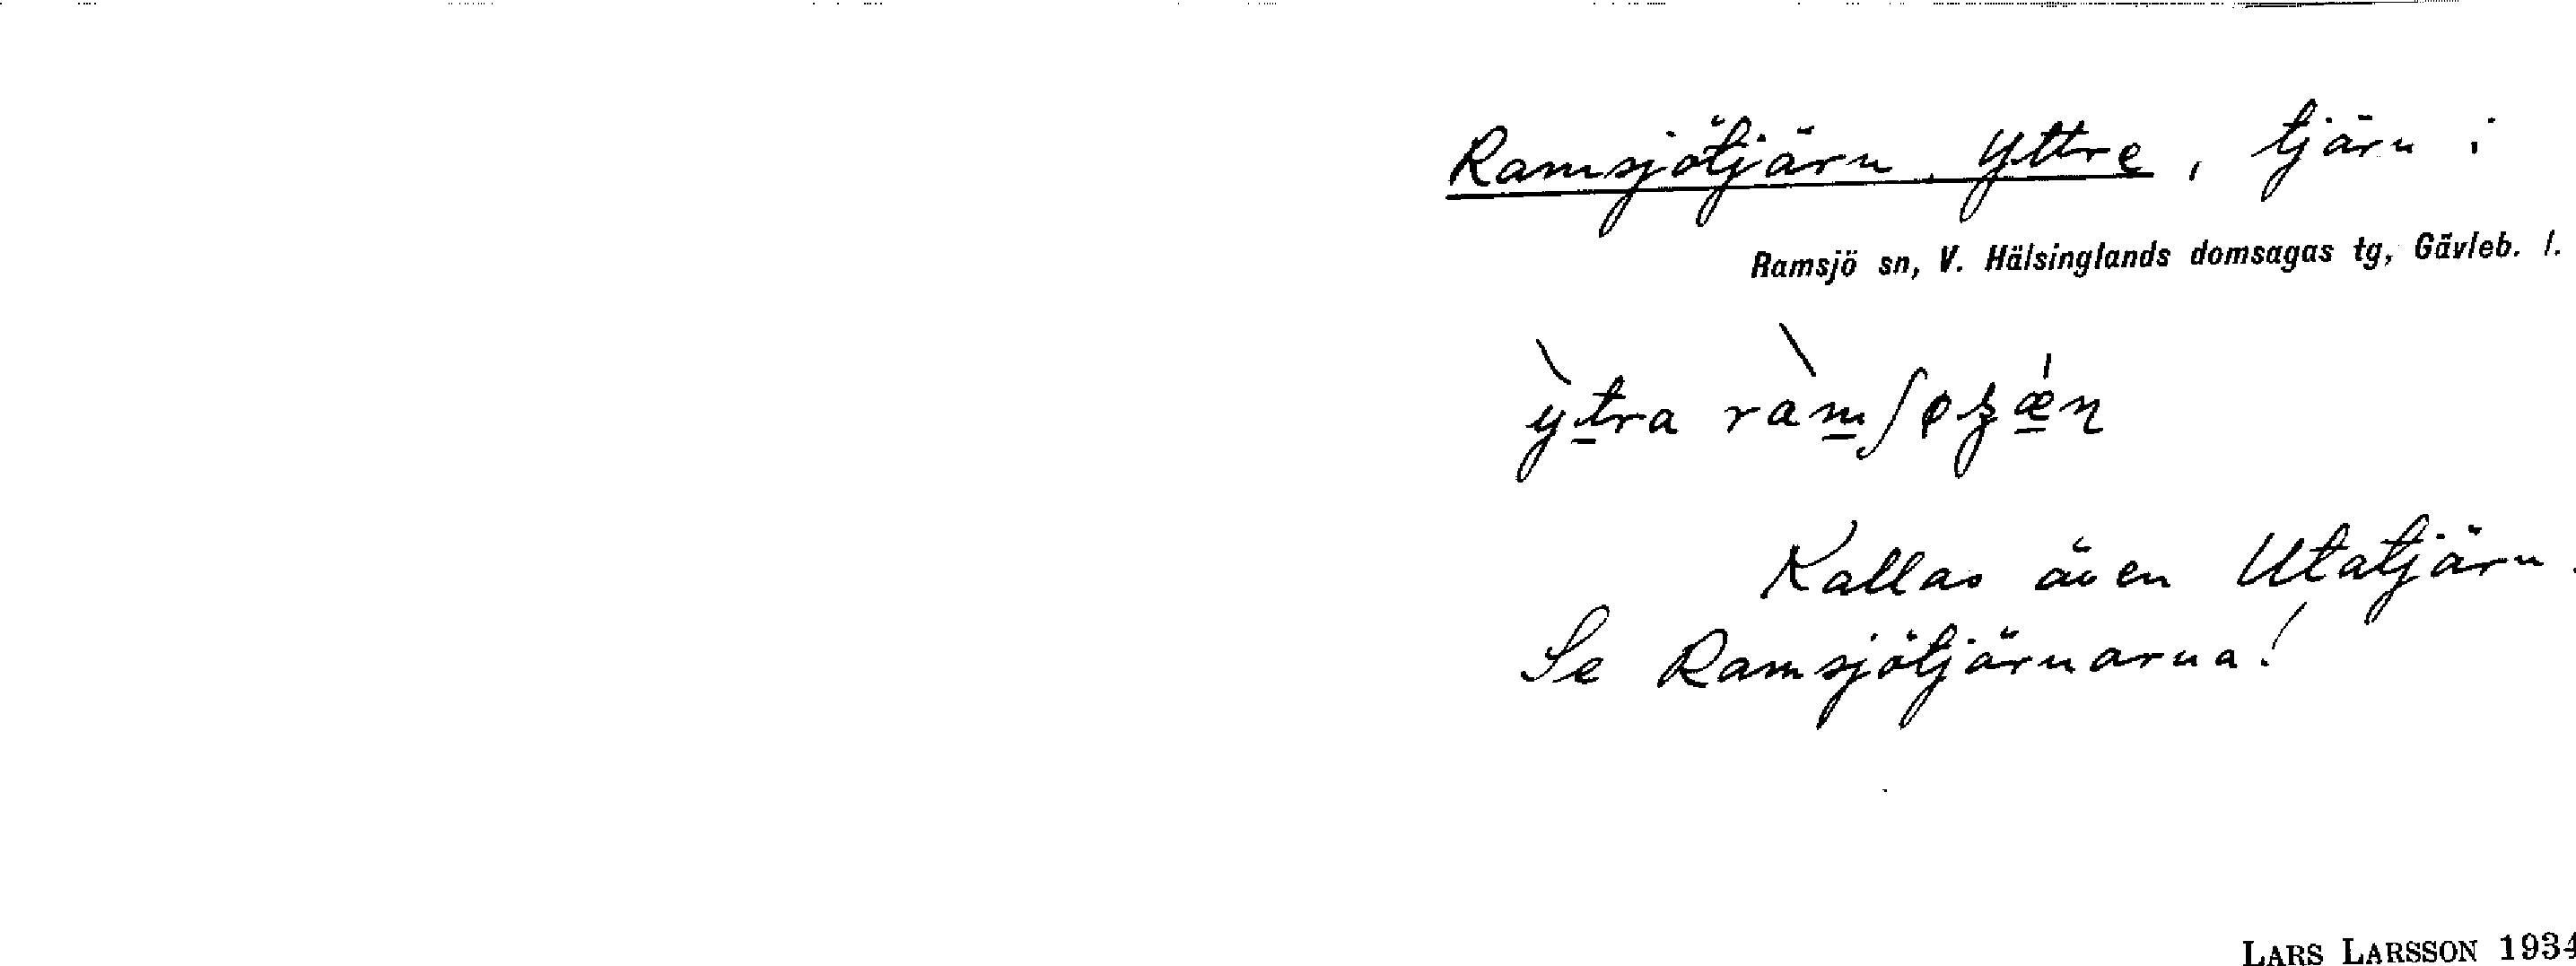 Ramsjötjärn, Yttre, tjärn i
Ramsjö sn, V. Hälsinglands domsagas tg, Gävleb. l.
Kallas även Utatjärn.
Se Ramsjötjärnarna!
LARS LARSSON 1934